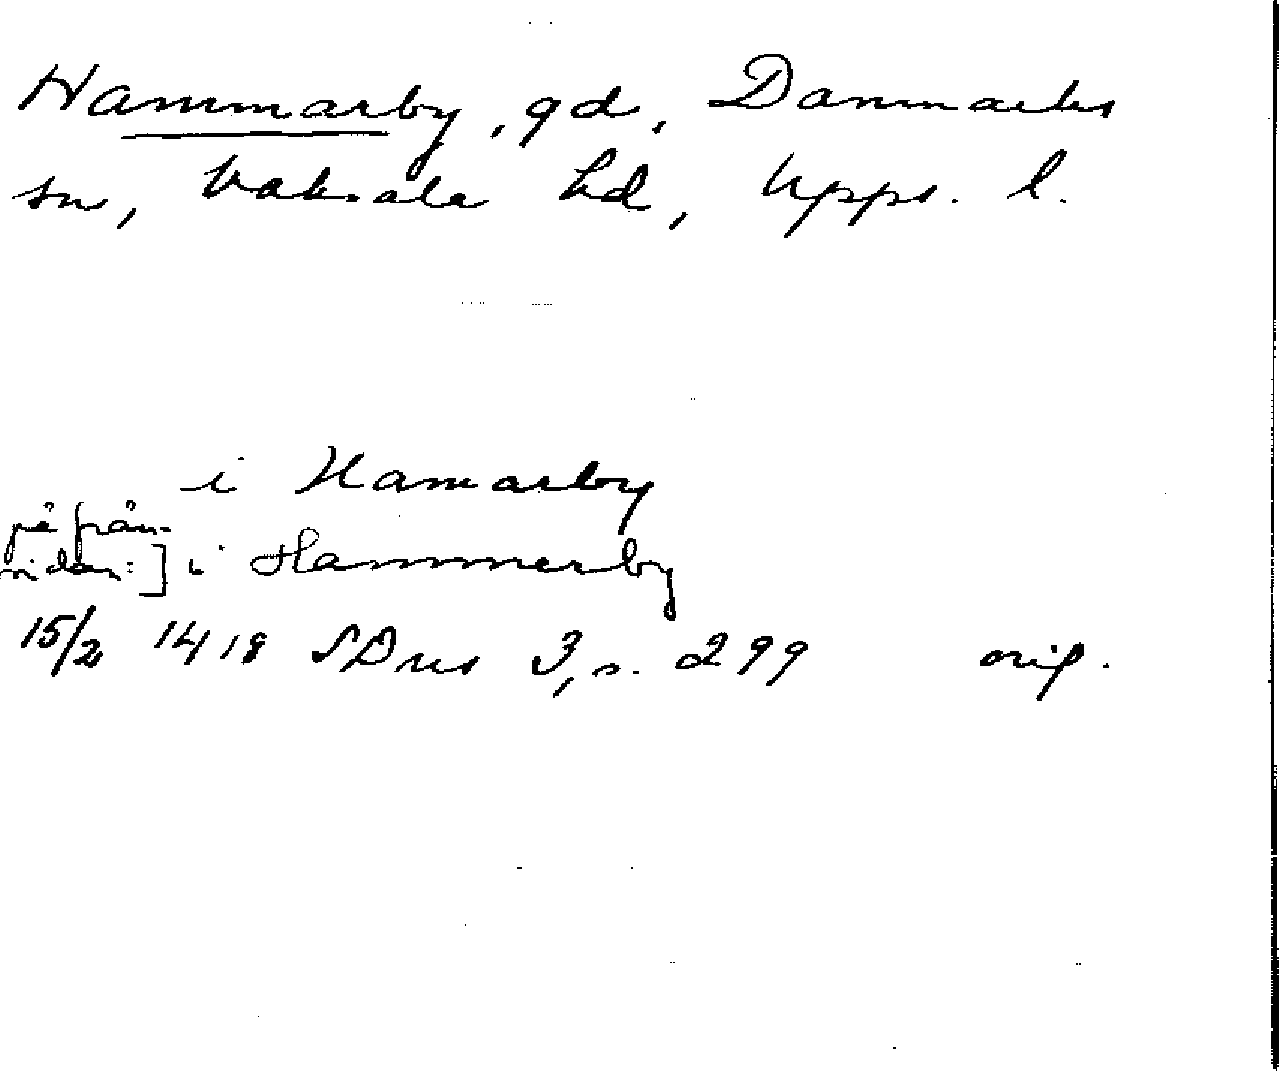 Hammarby, gd, Danmarks
sn, Vaksala hd, Upps. l.
i Hamarby
på från-
sidan:] i Hammerby
15/2 1418 SDns 3, s. 299 orig.